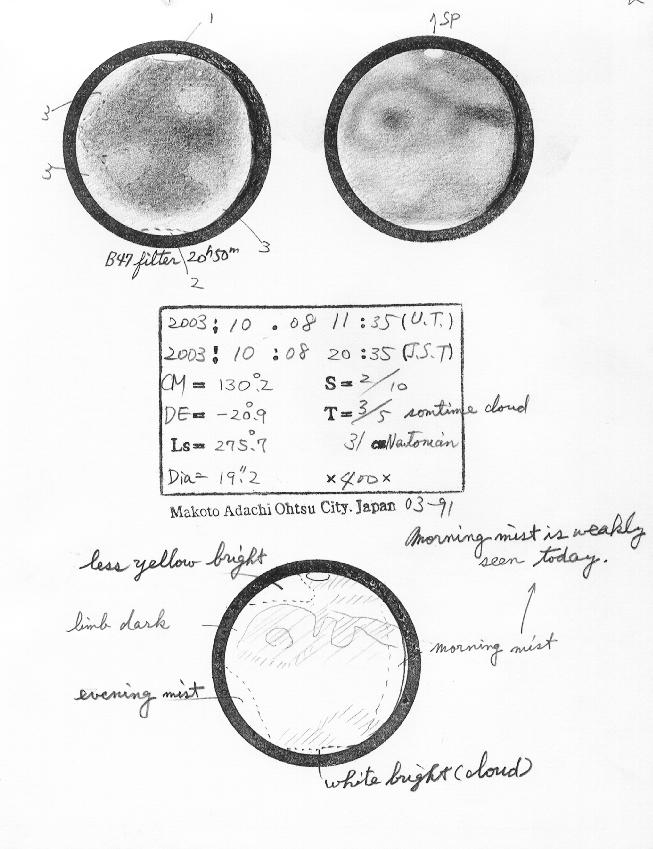 1
↑SP
3
3
3
B47 filter 20h50m
2
2003 : 10 . 08 11 : 35 (U.T.)
2003 ! 10 : 08 20 : 35 (J.S.T)
CM = 130°.2 S = 2/10
DE = -20°.9 T = 3/5 somtime cloud
Ls = 275°.7 31 cm Nautonian
Dia = 19".2 ×400×
Makoto Adachi Ohtsu City. Japan 03-91
Morning mist is weakly
seen today.
less yellow bright
limb dark
morning mist
evening mist
white bright (cloud)